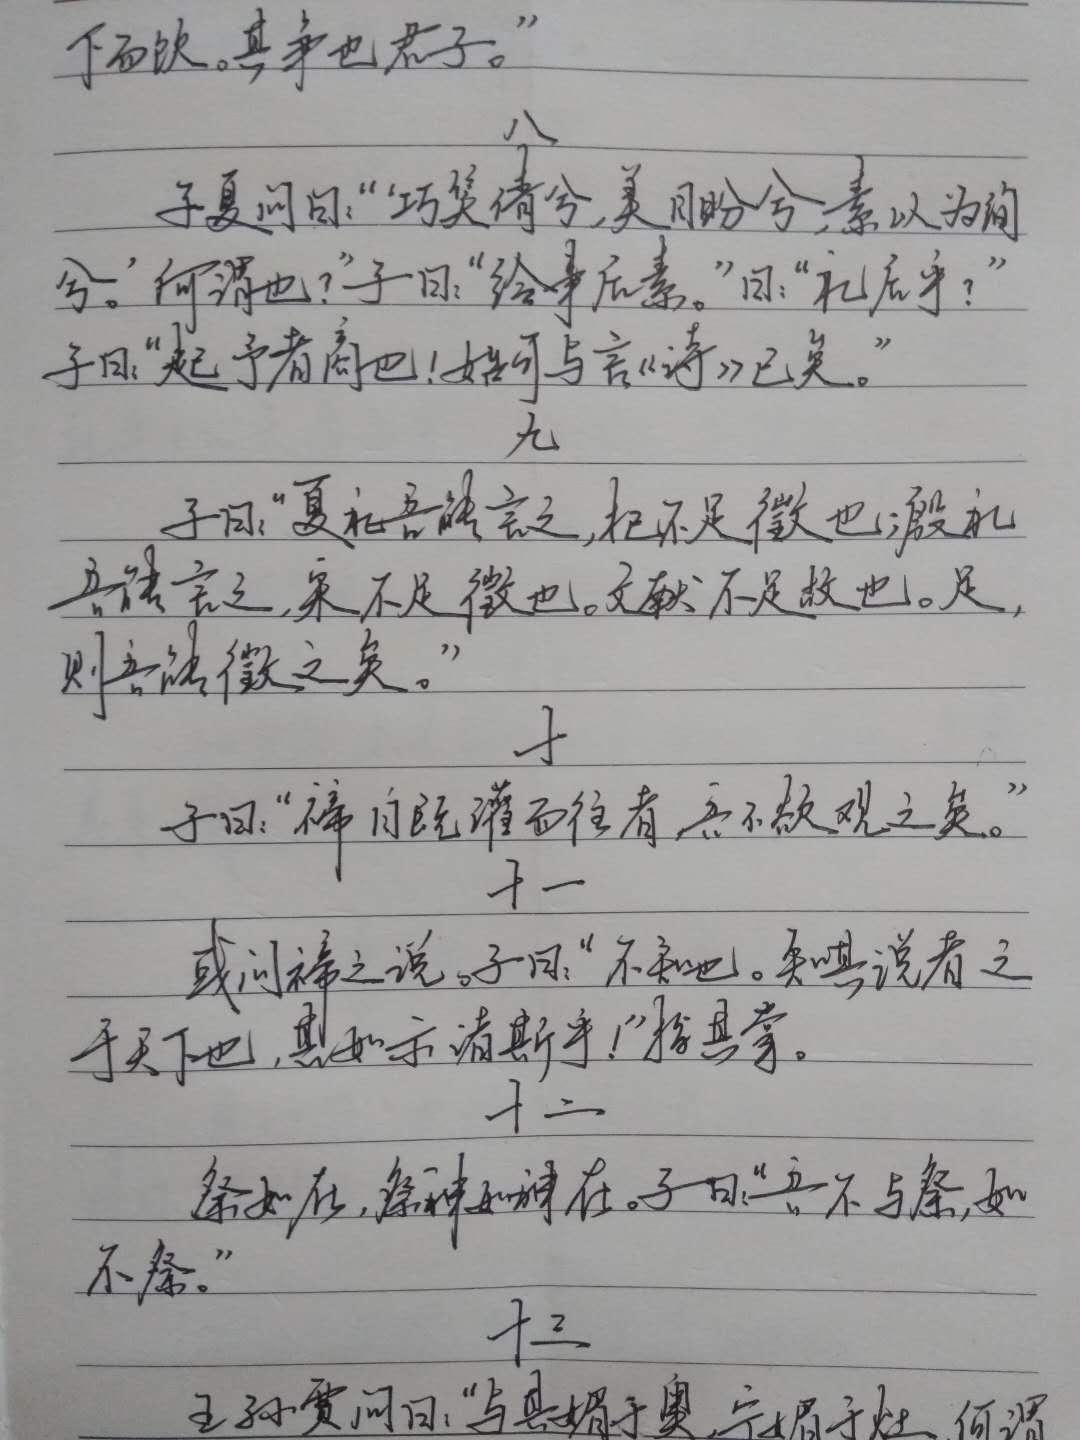 下而饮。其争也君子。”
八
子夏问曰：“‘巧笑倩兮，美目盼兮，素以为绚
兮。’何谓也？”子曰：“绘事后素。”曰：“礼后乎？”
子曰：“起予者商也！始可与言《诗》已矣。”
九
子曰：“夏礼吾能言之，杞不足徵也；殷礼
吾能言之，宋不足徵也。文献不足故也。足，
则吾能徵之矣。”
十
子曰：“禘自既灌而往者，吾不欲观之矣。”
十一
或问禘之说。子曰：“不知也。知其说者之
于天下也，其如示诸斯乎！”指其掌。
十二
祭如在，祭神如神在。子曰：“吾不与祭，如
不祭。”
十三
王孙贾问曰：“与其媚于奥，宁媚于灶，何谓